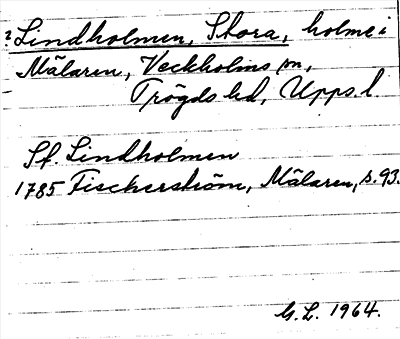 ? Lindholmen, Stora, holme i
Mälaren, Veckholms sn,
Trögds hd, Upps. l.
St. Lindholmen
1785 Fischerström, Mälaren, s. 93.
G. L. 1964.